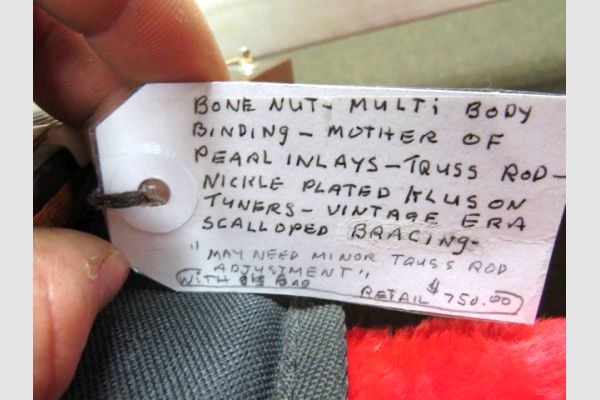 BONE NUT- MULTi BODY
BINDING - MOTHER OF
PEARL INLAYS - TRUSS ROD -
NICKLE PLATED KLUSON
TUNERS - VINTAGE ERA
SCALLOPED BRACING-
"MAY NEED MINOR TRUSS ROD
ADJUSTMENT"
WITH GIG BAG RETAIL $750.00